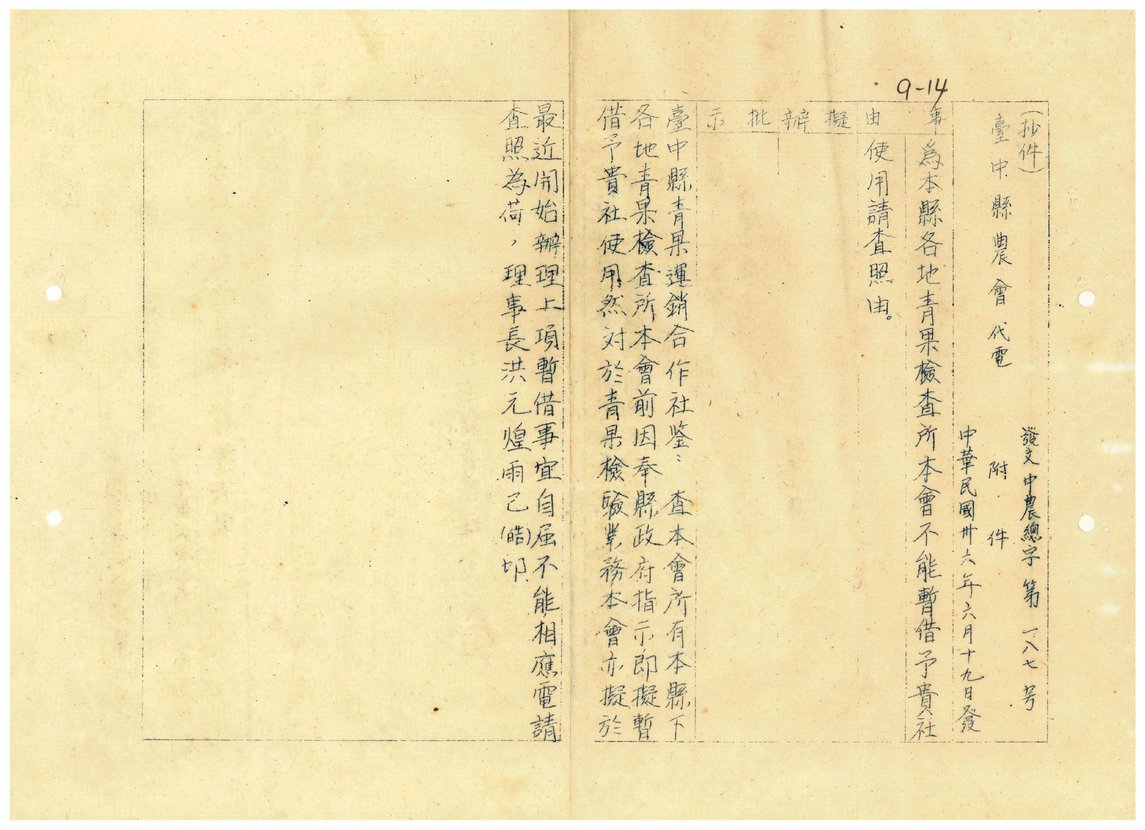 9-14
(抄件)
臺中縣農會代電
發文中農總字第一八七号
附件
中華民國卅六年六月十九日發
事由
為本縣各地青果檢查所本會不能暫借予貴社
使用請查照由。
擬辦
批示
臺中縣青果運銷合作社鑒：查本會所有本縣下
各地青果檢查所本會前因奉縣政府指示即擬暫
借予貴社使用然对於青果檢驗業務本會亦擬於
最近開始辦理上項暫借事宜自屆不能相應電請
查照為荷，理事長洪元煌雨巳(皓)印